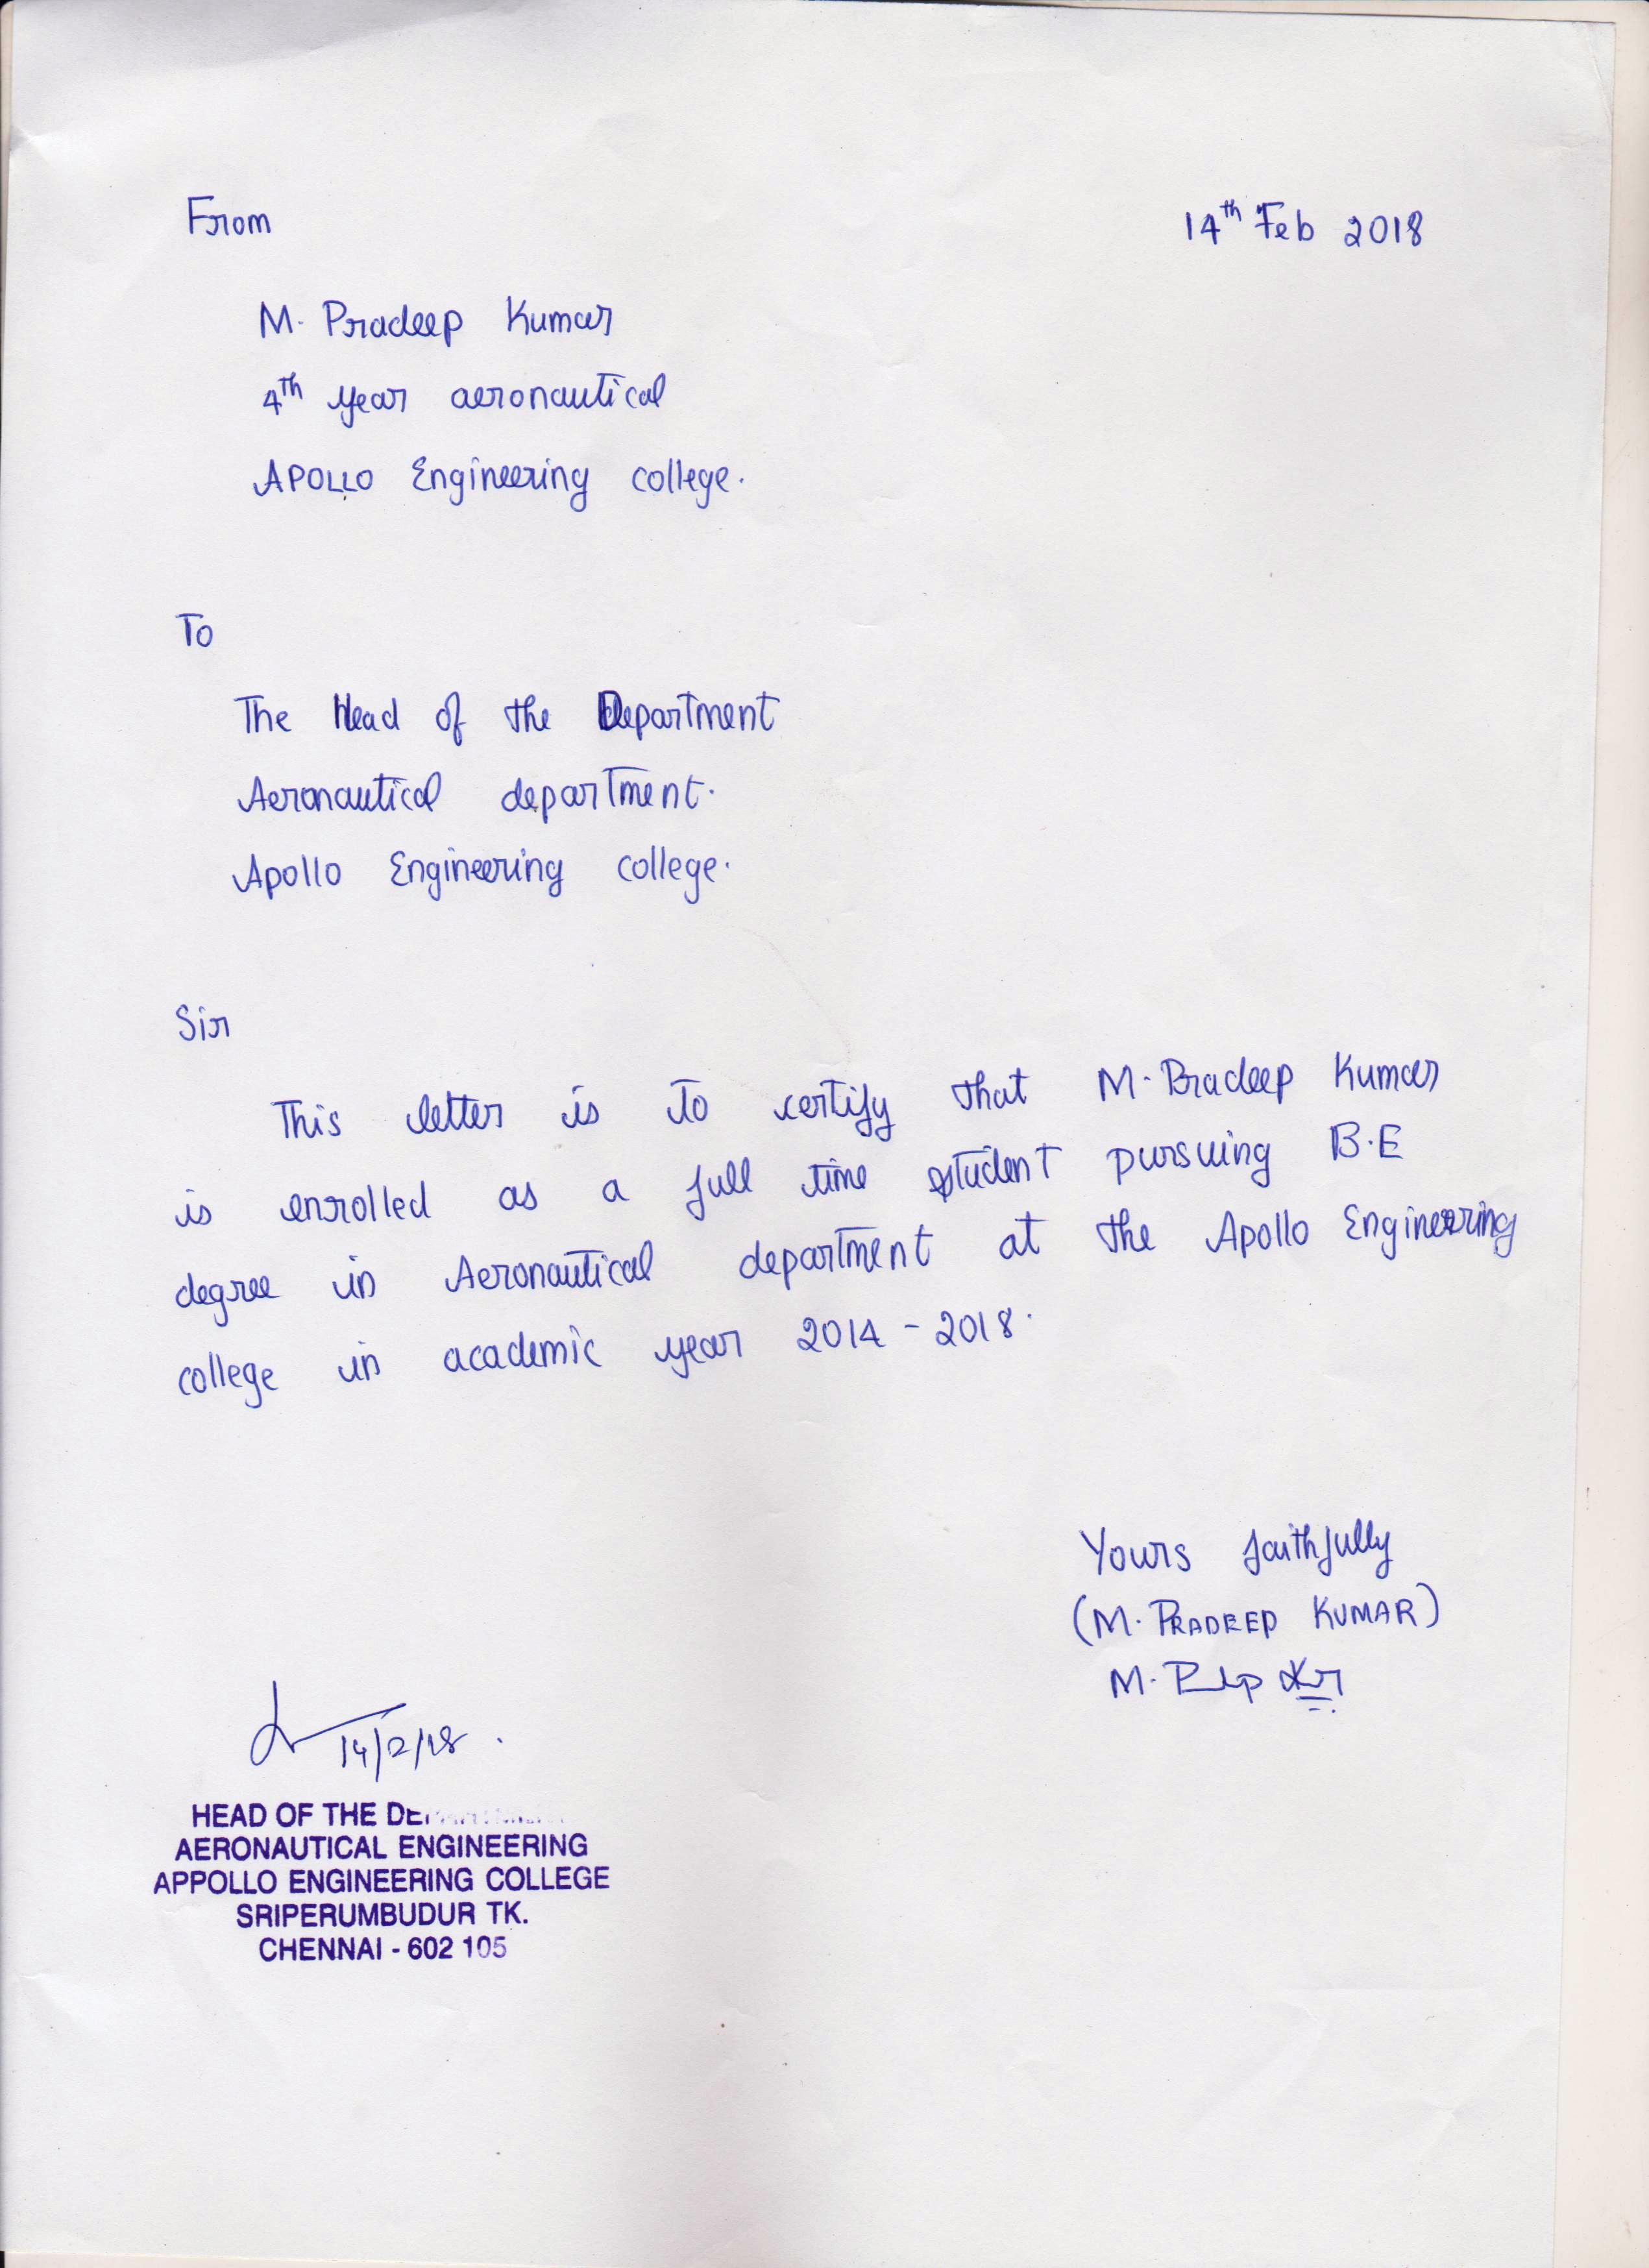 From
14th Feb 2018
M. Pradeep Kumar
4th year aeronautical
APOLLO Engineering college.
To
The Head of the Department
Aeronautical department.
Apollo Engineering college.
Sir
This letter is to certify that M. Pradeep Kumar
is enrolled as a full time student pursuing B.E
degree in Aeronautical department at the Apollo Engineering
college in academic year 2014 - 2018.
Yours faithfully
(M. PRADEEP KUMAR)
14/2/18.
HEAD OF THE
AERONAUTICAL ENGINEERING
APPOLLO ENGINEERING COLLEGE
SRIPERUMBUDUR TK.
CHENNAI - 602 105